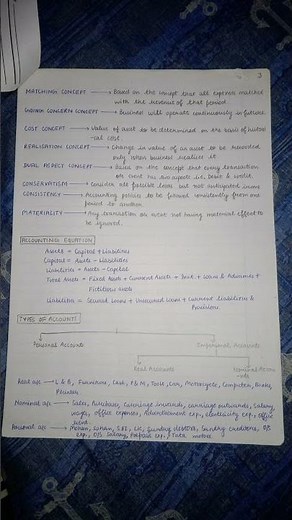 3
MATCHING CONCEPT → Based on the concept that all expenses matched
with the revenue of that period.
GOING CONCERN CONCEPT → Business will operate continuously in future.
COST CONCEPT → Value of asset to be determined on the basis of histori
-cal cost.
REALISATION CONCEPT → Change in value of an asset to be recorded
only when business realises it.
DUAL ASPECT CONCEPT → Based on the concept that every transaction
or event has two aspects i.e. Debit & credit.
CONSERVATISM → Consider all possible losses but not anticipated income
CONSISTENCY → Accounting policies to be followed consistently from one
period to another.
MATERIALITY → Any transaction or event not having material effect to
be ignored.
ACCOUNTING EQUATION
Assets = Capital + Liabilities
Capital = Assets - Liabilities
Liabilities = Assets - Capital
Total Assets = Fixed Assets + Current Assets + Loans & Advances +
Fictitious assets
Liabilities = Secured Loans + Unsecured Loans + Current Liabilities &
Provisions.
TYPES OF ACCOUNTS
Personal Accounts Impersonal Accounts
Real A/c Nominal
Real a/c → L & B, Furniture, Cash, P & M, Tools, Motorcycle, Computer,
Printer
Nominal a/c → Sales, Purchase, Carriage inwards, carriage outwards, Salary
wages, office expenses, Advertisement exp., electricity exp., office
Rent
Personal a/c → Mohan, Sohan, SBI, LIC, Sundry debtors, Sundry creditors, O/s
exp, O/s Salary, Prepaid exp., Tata